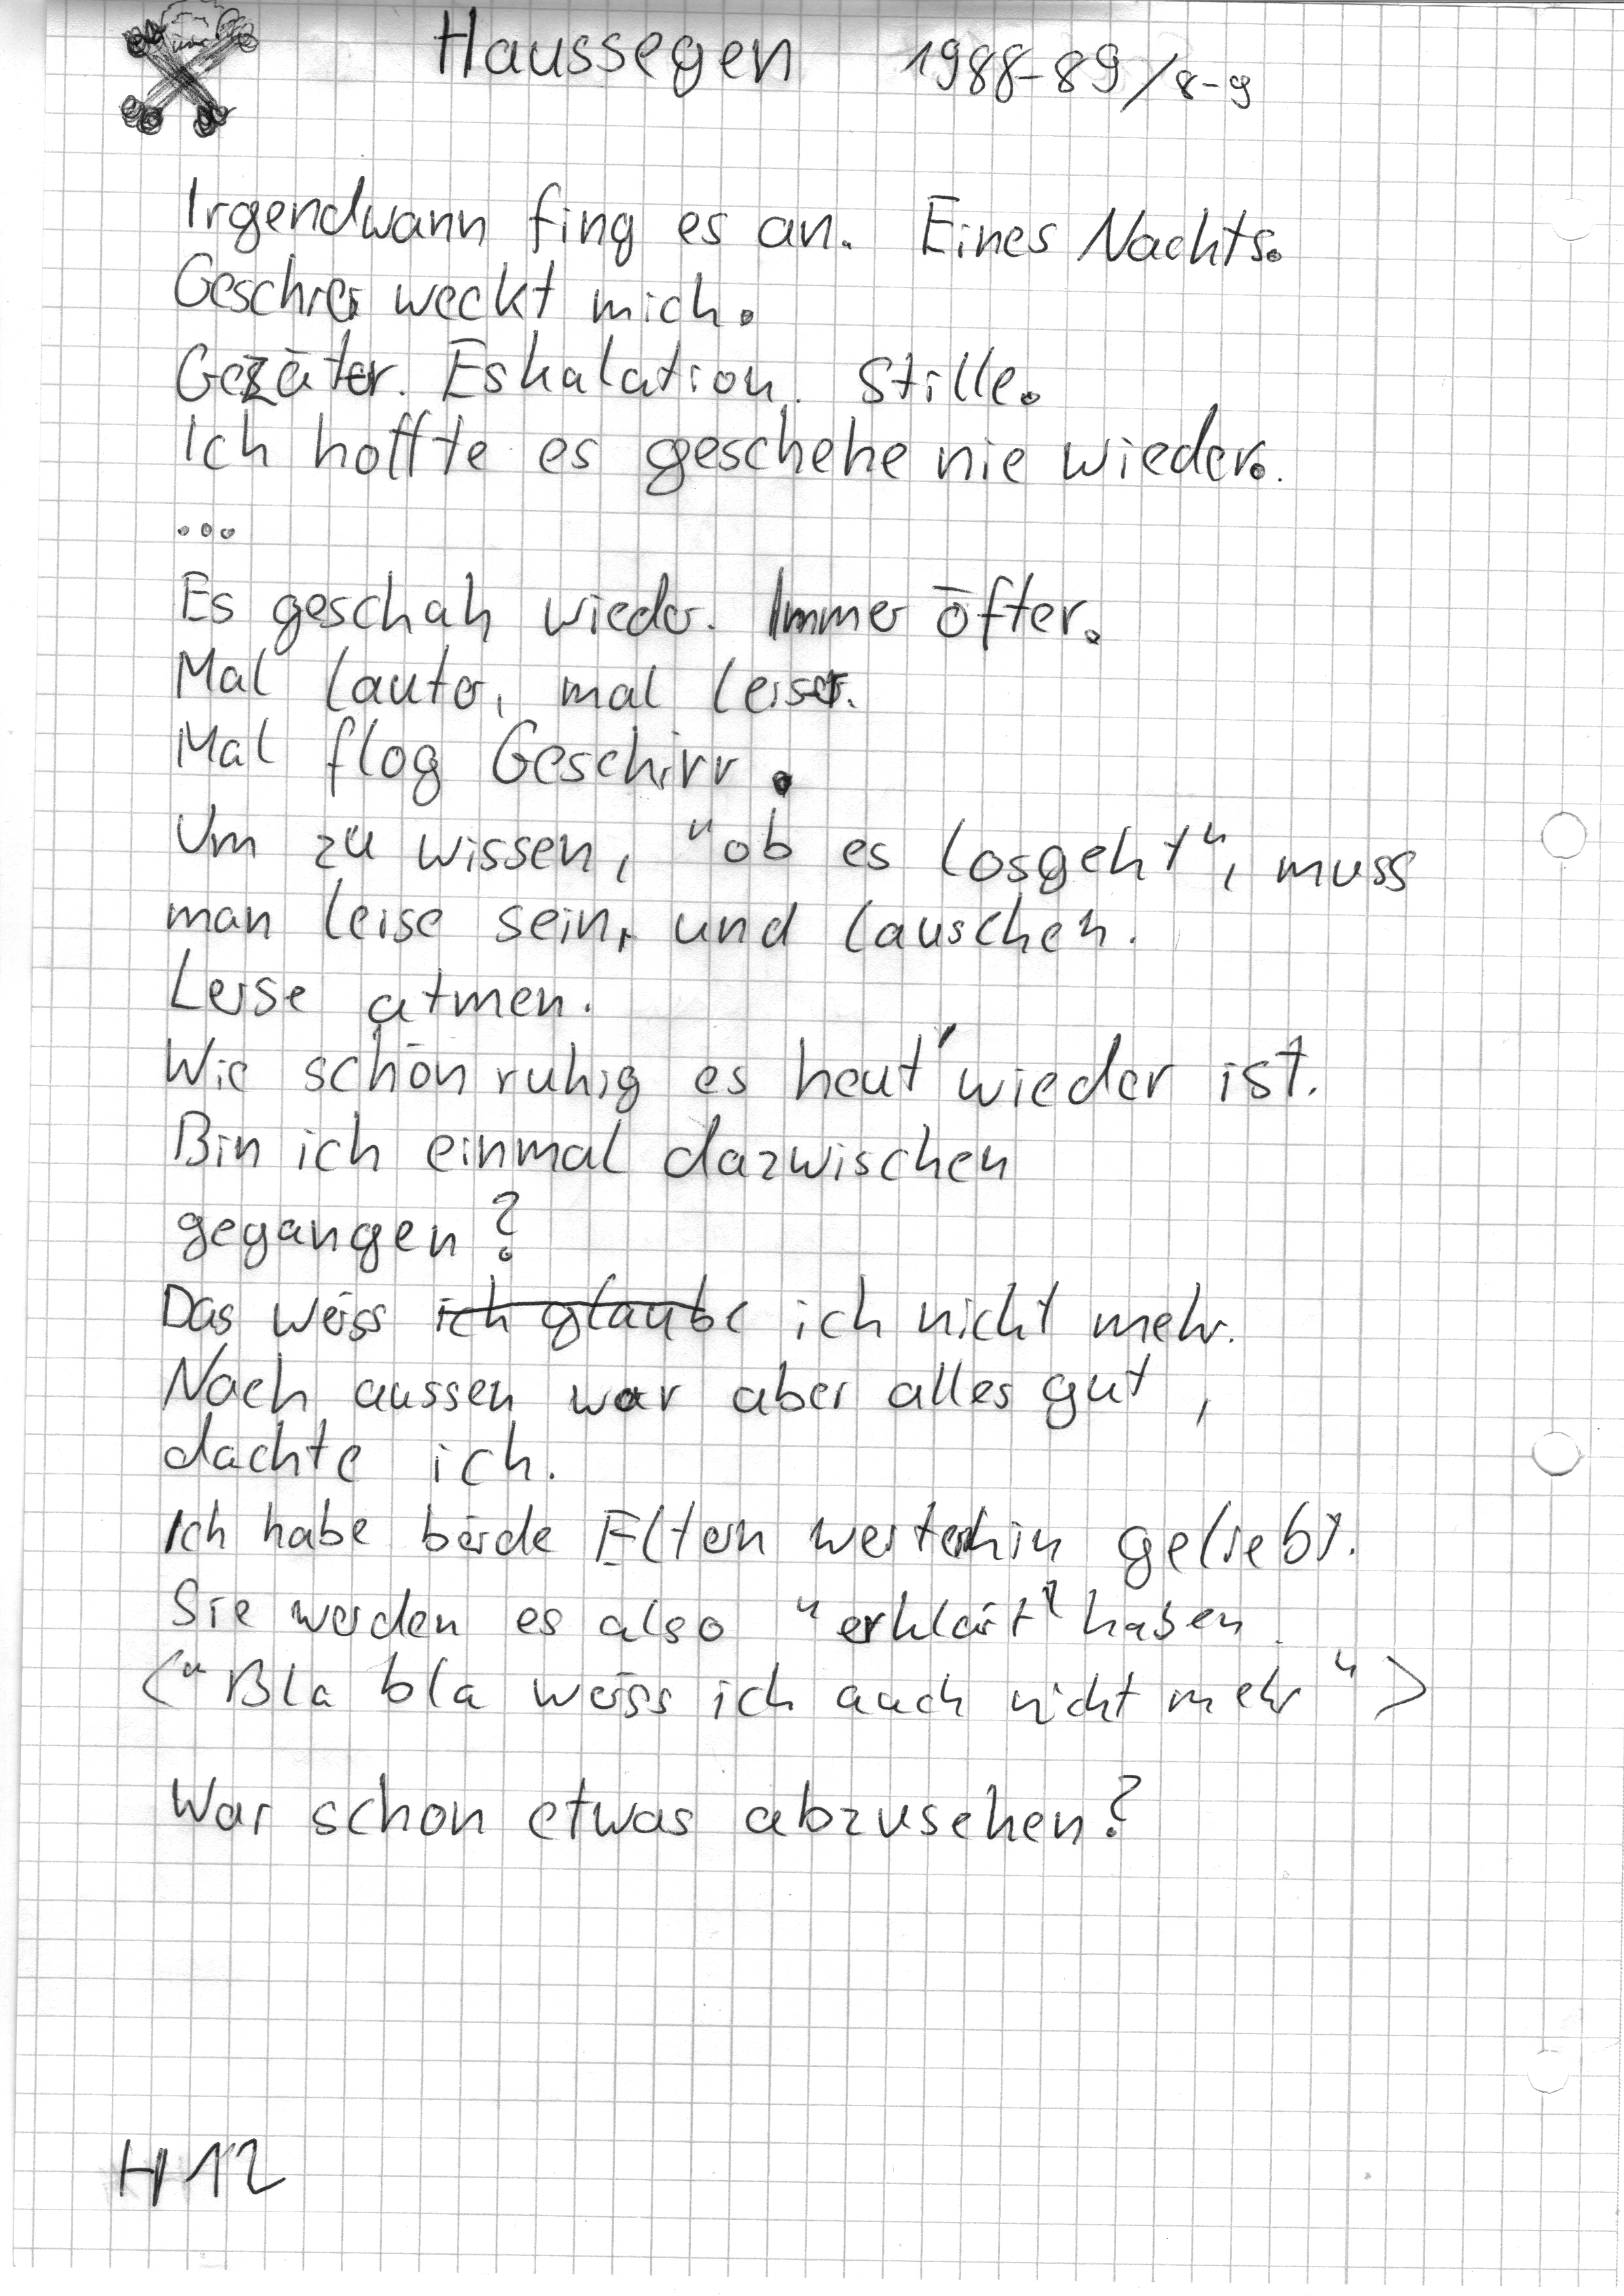 Haussegen 1988-89/8-9
Irgendwann fing es an. Eines Nachts.
Geschrei weckt mich.
Gezäter. Eskalation. Stille.
Ich hoffte es geschehe nie wieder.
...
Es geschah wieder. Immer öfter.
Mal lauter, mal leiser.
Mal flog Geschirr.
Um zu wissen, "ob es losgeht", muss
man leise sein, und lauschen.
Leise atmen.
Wie schön ruhig es heut' wieder ist.
Bin ich einmal dazwischen
gegangen?
Das weiss ich glaube ich nicht mehr.
Nach aussen war aber alles gut,
dachte ich.
Ich habe beide Eltern weiterhin geliebt.
Sie werden es also "erklärt" haben.
<"Bla bla weiss ich auch nicht mehr">
War schon etwas abzusehen?
H12